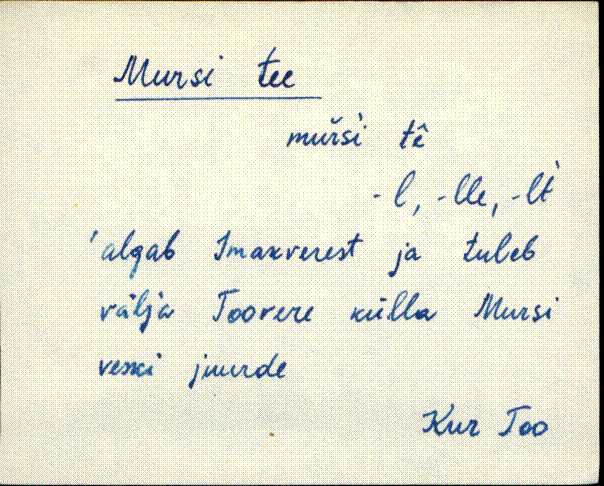 Mursi tee
mur̆si̇̀ tê
-l, -lle, -lt̀
'algab Imaxverest ja tuleb
välja Toovere külla Mursi
veski juurde
Kur Too